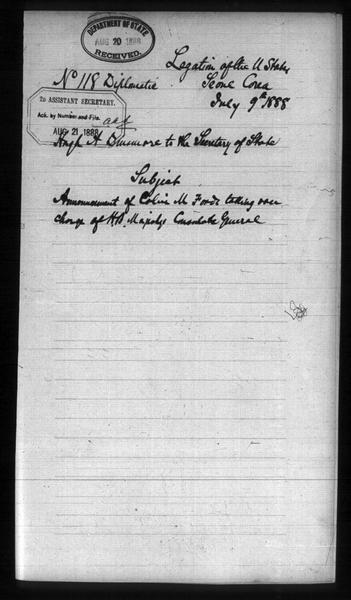 DEPARTMENT OF STATE
AUG 20 1888
RECEIVED.
Legation of the U States
Nº 118 Diplomatic Seoul Corea
July 9th 1888
To ASSISTANT SECRETARY.
Ack. by Number and File.
AUG 21 1888
Hugh A Dinsmore to the Secretary of State
Subject
Announcement of Colin M Ford's taking over
charge of H.B. Majestys Consulate General